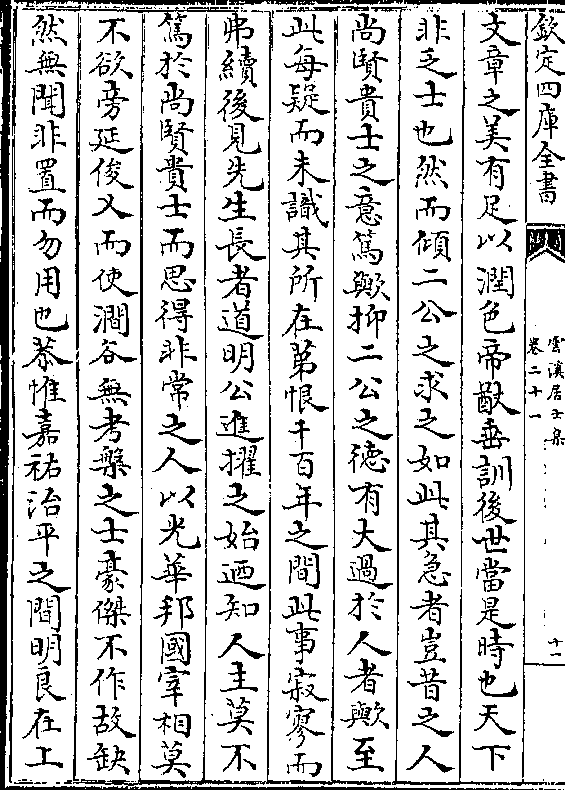 欽定四庫全書
雲溪居士集
卷二十一
十一
文章之美有足以潤色帝猷垂訓後世當是時也天下
非乏士也然而傾二公之求之如此其急者豈昔之人
尚賢貴士之意篤歟抑二公之德有大過於人者歟至
此每疑而未識其所在第恨千百年之間此事寂寥而
弗續後見先生長者道明公進擢之始迺知人主莫不
篤於尚賢貴士而思得非常之人以光華邦國宰相莫
不欲旁延俊乂而使澗谷無考槃之士豪傑不作故缺
然無聞非置而勿用也恭惟嘉祐治平之間明良在上